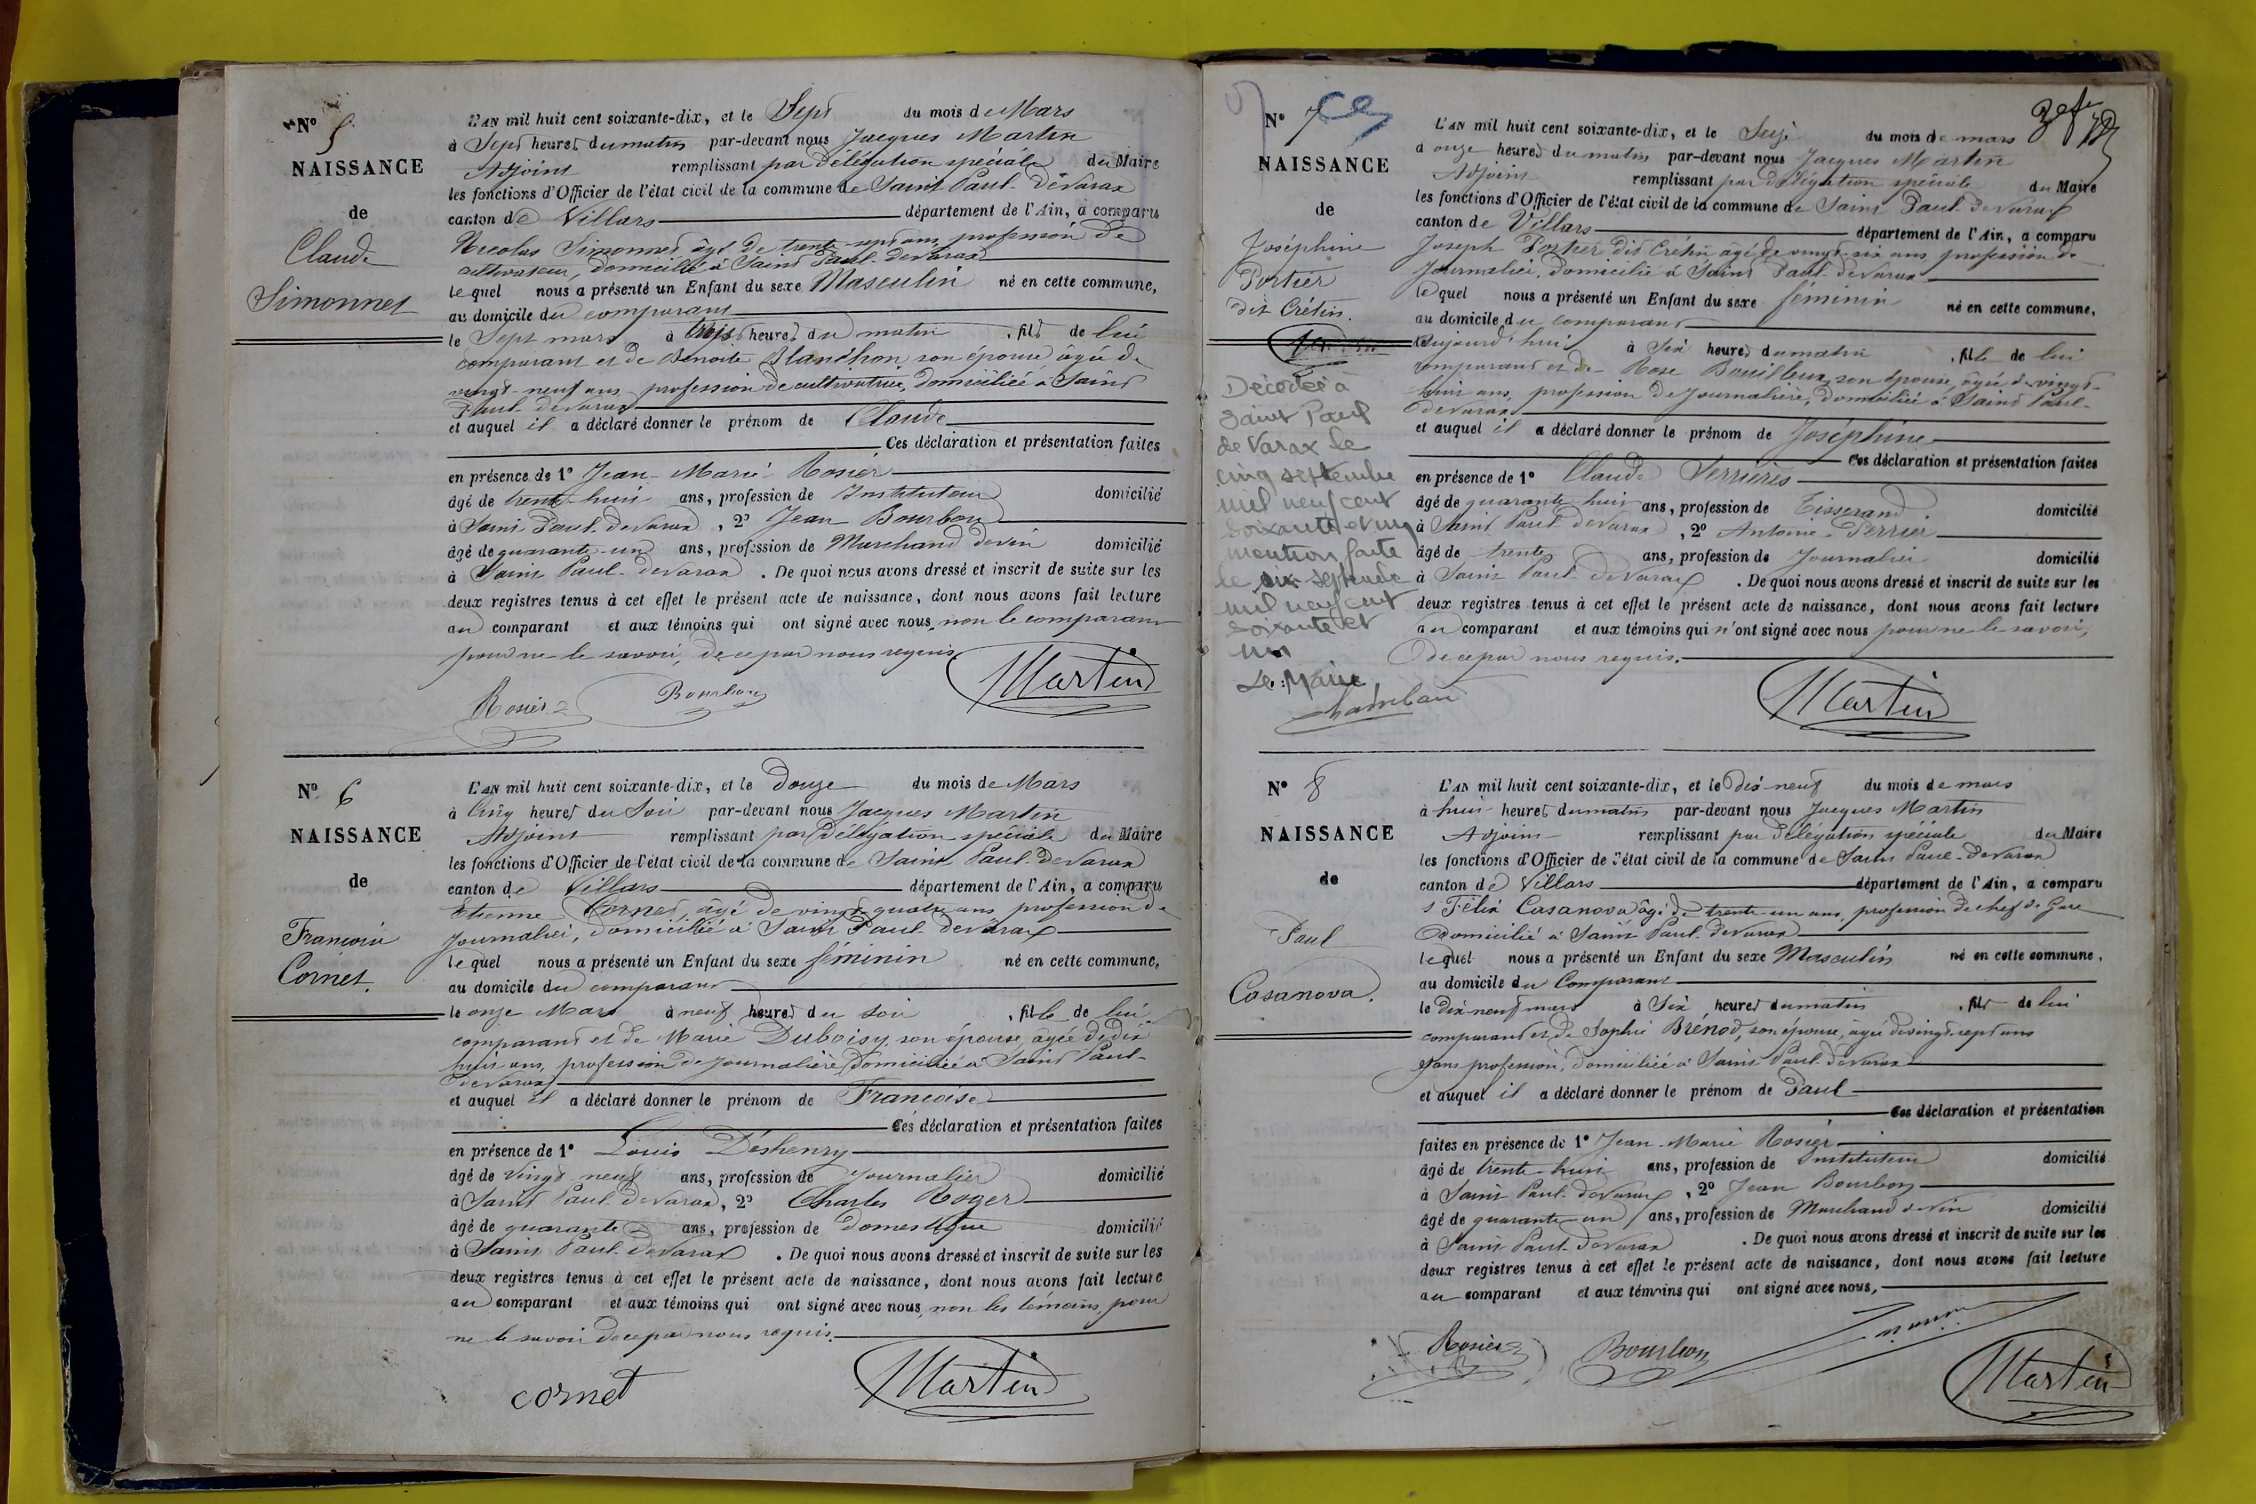 N° 5
NAISSANCE
de
Claude
Simonnet
L'AN mil huit cent soixante-dix, et le Sept du mois de Mars
à Sept heures du matin par-devant nous Jacques Martin
Adjoint remplissant par délégation spéciale du Maire
les fonctions d'Officier de l'état civil de la commune de Saint Paul-de Varax
canton de Villars département de l'Ain, a comparu
Nicolas Simonnet âgé de trente-sept ans, profession de
cultivateur, domicilié à Saint Paul-de Varax
lequel nous a présenté un Enfant du sexe Masculin né en cette commune,
au domicile du comparant
le Sept mars à trois heures du matin, fils de lui
comparant et de Benoite Blanchon son épouse, âgée de
vingt-neuf ans, profession de cultivatrice, domiciliée à Saint
Paul-de Varax
et auquel il a déclaré donner le prénom de Claude
Ces déclaration et présentation faites
en présence de 1° Jean-Marie Rosier
âgé de trente-huit ans, profession de Instituteur domicilié
à Saint Paul-de Varax, 2° Jean Bourbon
âgé de quarante-un ans, profession de Marchand de vin domicilié
à Saint Paul-de Varax. De quoi nous avons dressé et inscrit de suite sur les
deux registres tenus à cet effet le présent acte de naissance, dont nous avons fait lecture
au comparant et aux témoins qui ont signé avec nous, non le comparant
pour ne le savoir, de ce par nous requis
Rosier Bourbon Martin
N° 6
NAISSANCE
de
Françoise
Cornet.
L'AN mil huit cent soixante-dix, et le Douze du mois de Mars
à Cinq heures du Soir par-devant nous Jacques Martin
Adjoint remplissant par délégation spéciale du Maire
les fonctions d'Officier de l'état civil de la commune de Saint Paul-de Varax
canton de Villars département de l'Ain, a comparu
Etienne Cornet, âgé de vingt-quatre ans, profession de
Journalier, domicilié à Saint Paul-de Varax
lequel nous a présenté un Enfant du sexe féminin né en cette commune,
au domicile du comparant
le onze Mars à neuf heures du soir, fille de lui
comparant et de Marie Duboisy, son épouse, âgée de dix
huit ans, profession de Journalière, domiciliée à Saint Paul-
de Varax
et auquel il a déclaré donner le prénom de Françoise
Ces déclaration et présentation faites
en présence de 1° Louis Deshenry
âgé de vingt-neuf ans, profession de Journalier domicilié
à Saint Paul-de Varax, 2° Charles Roger
âgé de quarante ans, profession de domestique domicilié
à Saint Paul-de Varax. De quoi nous avons dressé et inscrit de suite sur les
deux registres tenus à cet effet le présent acte de naissance, dont nous avons fait lecture
au comparant et aux témoins qui ont signé avec nous, non les témoins, pour
ne le savoir de ce par nous requis.
cornet Martin
N° 7
NAISSANCE
de
Joséphine
Portier
dit Crétin.
Décédée à
Saint Paul
de Varax le
cinq septembre
mil neuf cent
soixante et un
mention faite
le six septembre
mil neuf cent
soixante et
un
Le Maire
L'AN mil huit cent soixante-dix, et le Seize du mois de mars
à onze heures du matin par-devant nous Jacques Martin
Adjoint remplissant par délégation spéciale du Maire
les fonctions d'Officier de l'état civil de la commune de Saint Paul-de Varax
canton de Villars département de l'Ain, a comparu
Joseph Portier dit Crétin âgé de vingt-six ans, profession de
Journalier, domicilié à Saint Paul-de Varax
lequel nous a présenté un Enfant du sexe féminin né en cette commune,
au domicile du comparant
aujourd'hui à Six heures du matin, fille de lui
comparant et de Rose Bouilloux, son épouse, âgée de vingt-
huit ans, profession de Journalière, domiciliée à Saint Paul-
de Varax
et auquel il a déclaré donner le prénom de Joséphine
Ces déclaration et présentation faites
en présence de 1° Claude Ferrières
âgé de quarante-huit ans, profession de Tisserand domicilié
à Saint Paul-de Varax, 2° Antoine Perrier
âgé de trente ans, profession de Journalier domicilié
à Saint Paul-de Varax. De quoi nous avons dressé et inscrit de suite sur les
deux registres tenus à cet effet le présent acte de naissance, dont nous avons fait lecture
au comparant et aux témoins qui n'ont signé avec nous pour ne le savoir,
de ce par nous requis.
Martin
N° 8
NAISSANCE
de
Paul
Casanova.
L'AN mil huit cent soixante-dix, et le dix-neuf du mois de mars
à huit heures du matin par-devant nous Jacques Martin
Adjoint remplissant par délégation spéciale du Maire
les fonctions d'Officier de l'état civil de la commune de Saint Paul-de Varax
canton de Villars département de l'Ain, a comparu
Félix Casanova âgé de trente-un ans, profession de chef de Gare
domicilié à Saint Paul-de Varax
lequel nous a présenté un Enfant du sexe Masculin né en cette commune,
au domicile du Comparant
le Dix-neuf mars à Six heures du matin, fils de lui
comparant et de Sophie Brénod, son épouse, âgée de vingt-sept ans
sans profession, domiciliée à Saint Paul-de Varax
et auquel il a déclaré donner le prénom de Paul
Ces déclaration et présentation
faites en présence de 1° Jean-Marie Rosier
âgé de trente-huit ans, profession de Instituteur domicilié
à Saint Paul-de Varax, 2° Jean Bourbon
âgé de quarante-un ans, profession de Marchand de vin domicilié
à Saint Paul-de Varax. De quoi nous avons dressé et inscrit de suite sur les
deux registres tenus à cet effet le présent acte de naissance, dont nous avons fait lecture
au comparant et aux témoins qui ont signé avec nous,
Rosier Bourbon Martin